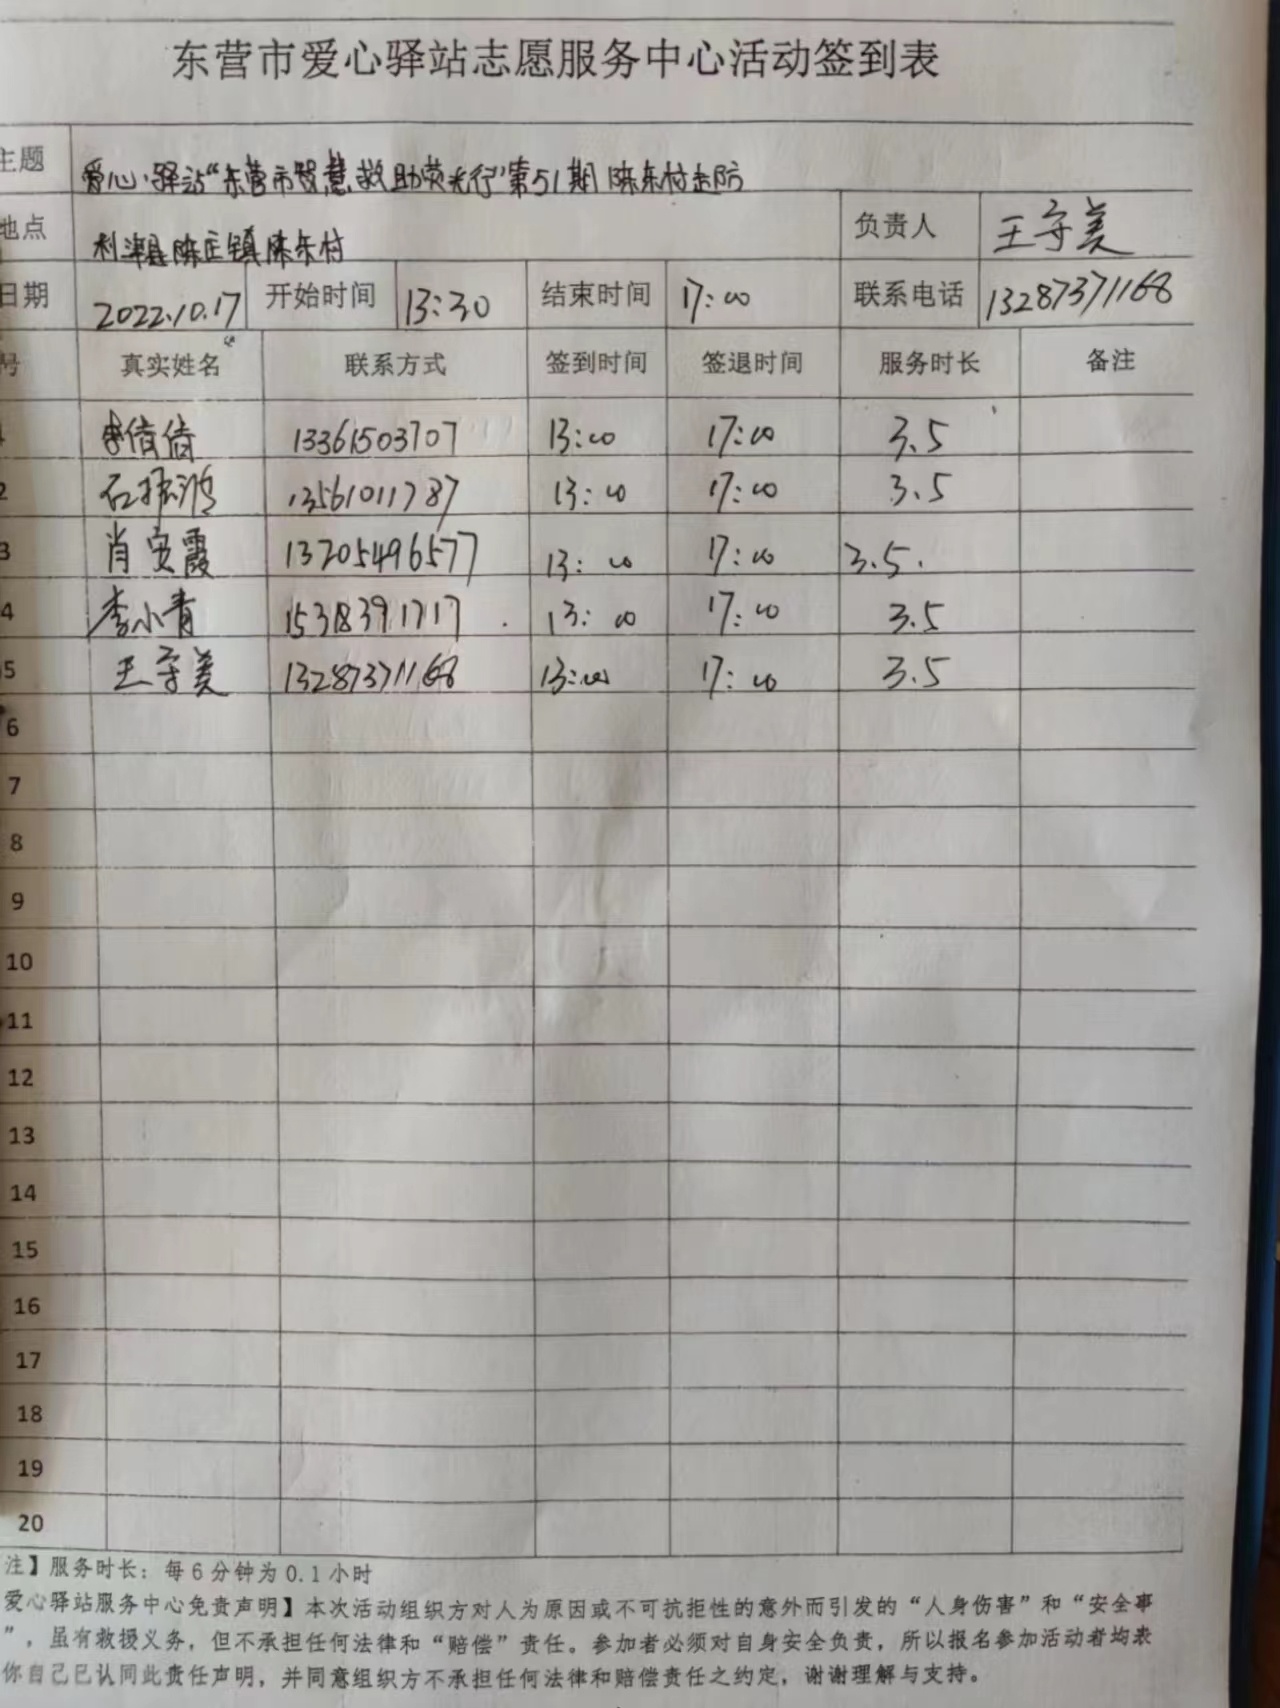 东营市爱心驿站志愿服务中心活动签到表
主题 爱心驿站“东营市智慧救助荧光行”第51期陈东村走访
地点 利津县陈庄镇陈东村 负责人 王守美
日期 2022.10.17 开始时间 13:30 结束时间 17:00 联系电话 13287371168
号 真实姓名 联系方式 签到时间 签退时间 服务时长 备注
1 倩倩 13361503707 13:00 17:00 3.5
2 石振鸿 13561011787 13:00 17:00 3.5
3 肖寅霞 13205496577 13:00 17:00 3.5.
4 李小青 15318391717 13:00 17:00 3.5
5 王守美 13287371168 13:00 17:00 3.5
6
7
8
9
10
11
12
13
14
15
16
17
18
19
20
注】服务时长：每6分钟为0.1小时
爱心驿站服务中心免责声明】本次活动组织方对人为原因或不可抗拒性的意外而引发的“人身伤害”和“安全事
”，虽有救援义务，但不承担任何法律和“赔偿”责任。参加者必须对自身安全负责，所以报名参加活动者均表
你自己已认同此责任声明，并同意组织方不承担任何法律和赔偿责任之约定，谢谢理解与支持。